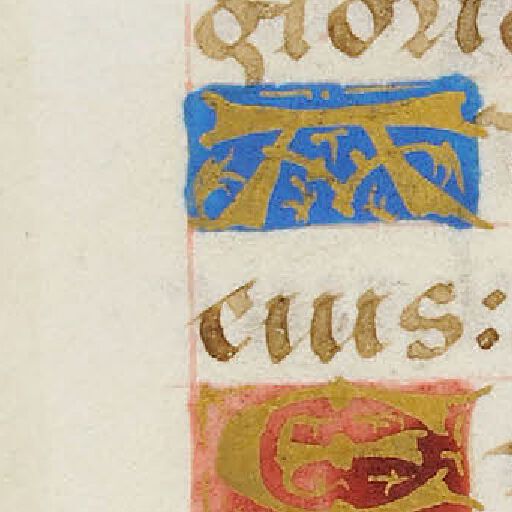 glori
A
eius:
E